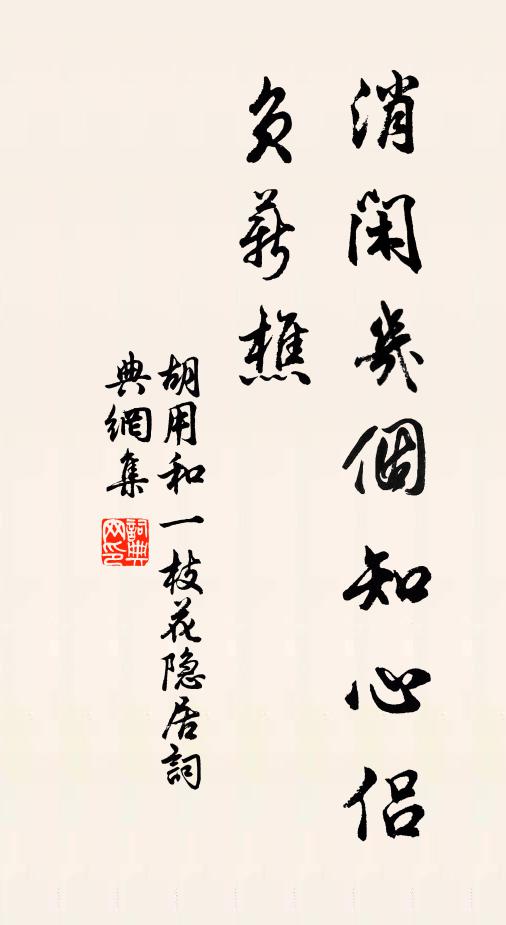 消闲幾個知心侣
負薪樵
胡用和一枝花隐居詞
典網集
詞典網印